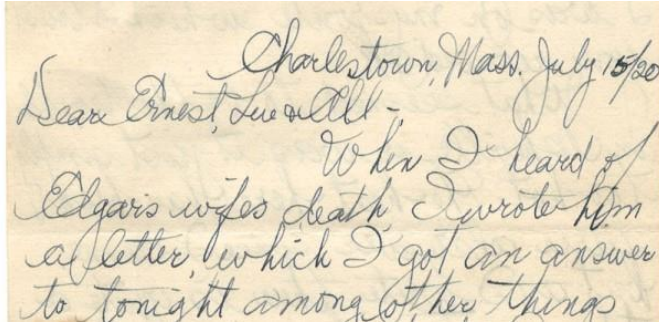 Charlestown, Mass. July 15/20
Dear Ernest, Lue & All -
When I heard of
Edgars wifes death, I wrote him
a letter, which I got an answer
to tonight among other things